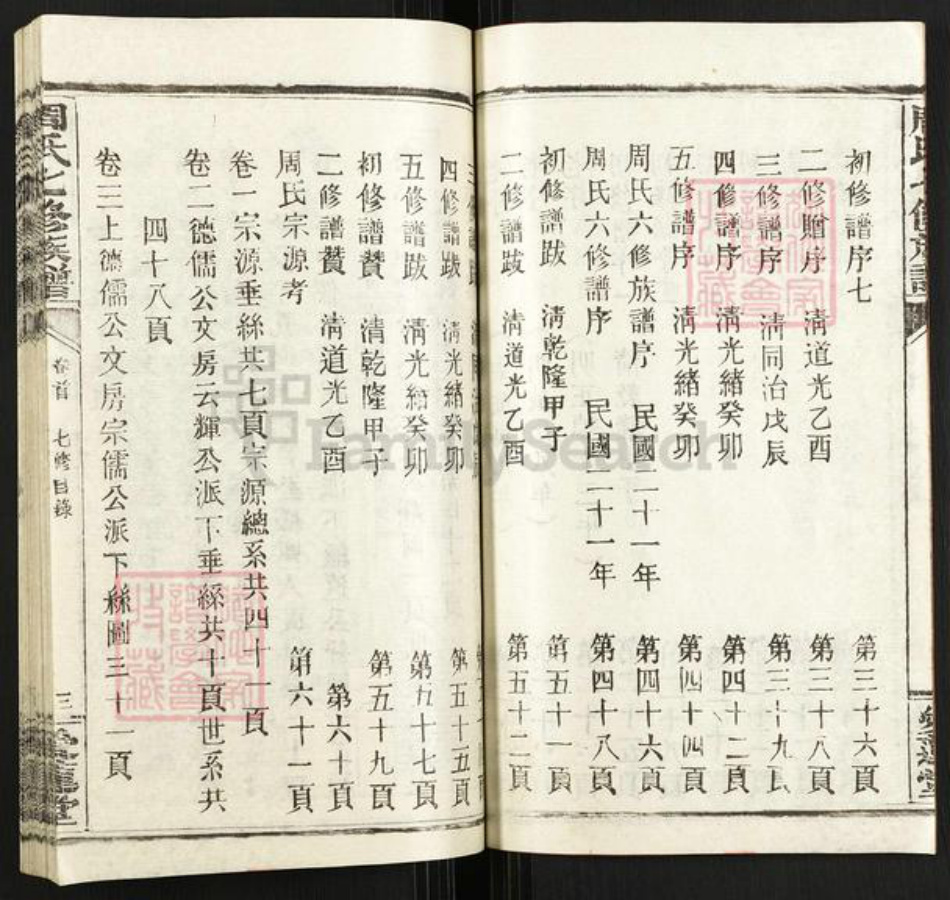 初修譜序七 第三十六頁
二修贈序 淸道光乙酉 第三十八頁
三修譜序 淸同治戊辰 第三十九頁
四修譜序 淸光緖癸卯 第四十二頁
五修譜序 淸光緖癸卯 第四十四頁
周氏六修族譜序 民國二十一年 第四十六頁
周氏六修譜序 民國二十一年 第四十八頁
初修譜跋 淸乾隆甲子 第五十一頁
二修譜跋 淸道光乙酉 第五十二頁
四修譜跋 淸光緖癸卯 第五十五頁
五修譜跋 淸光緖癸卯 第五十七頁
初修譜贊 淸乾隆甲子 第五十九頁
二修譜贊 淸道光乙酉 第六十頁
周氏宗源考 第六十一頁
卷一宗源垂絲共七頁宗源總系共四十一頁
卷二德儒公文房云輝公派下垂絲共十頁世系共
四十八頁
卷三上德儒公文房宗儒公派下絲圖三十一頁
周氏七修族譜 卷首 七修目錄 三 愛蓮堂
FamilySearch